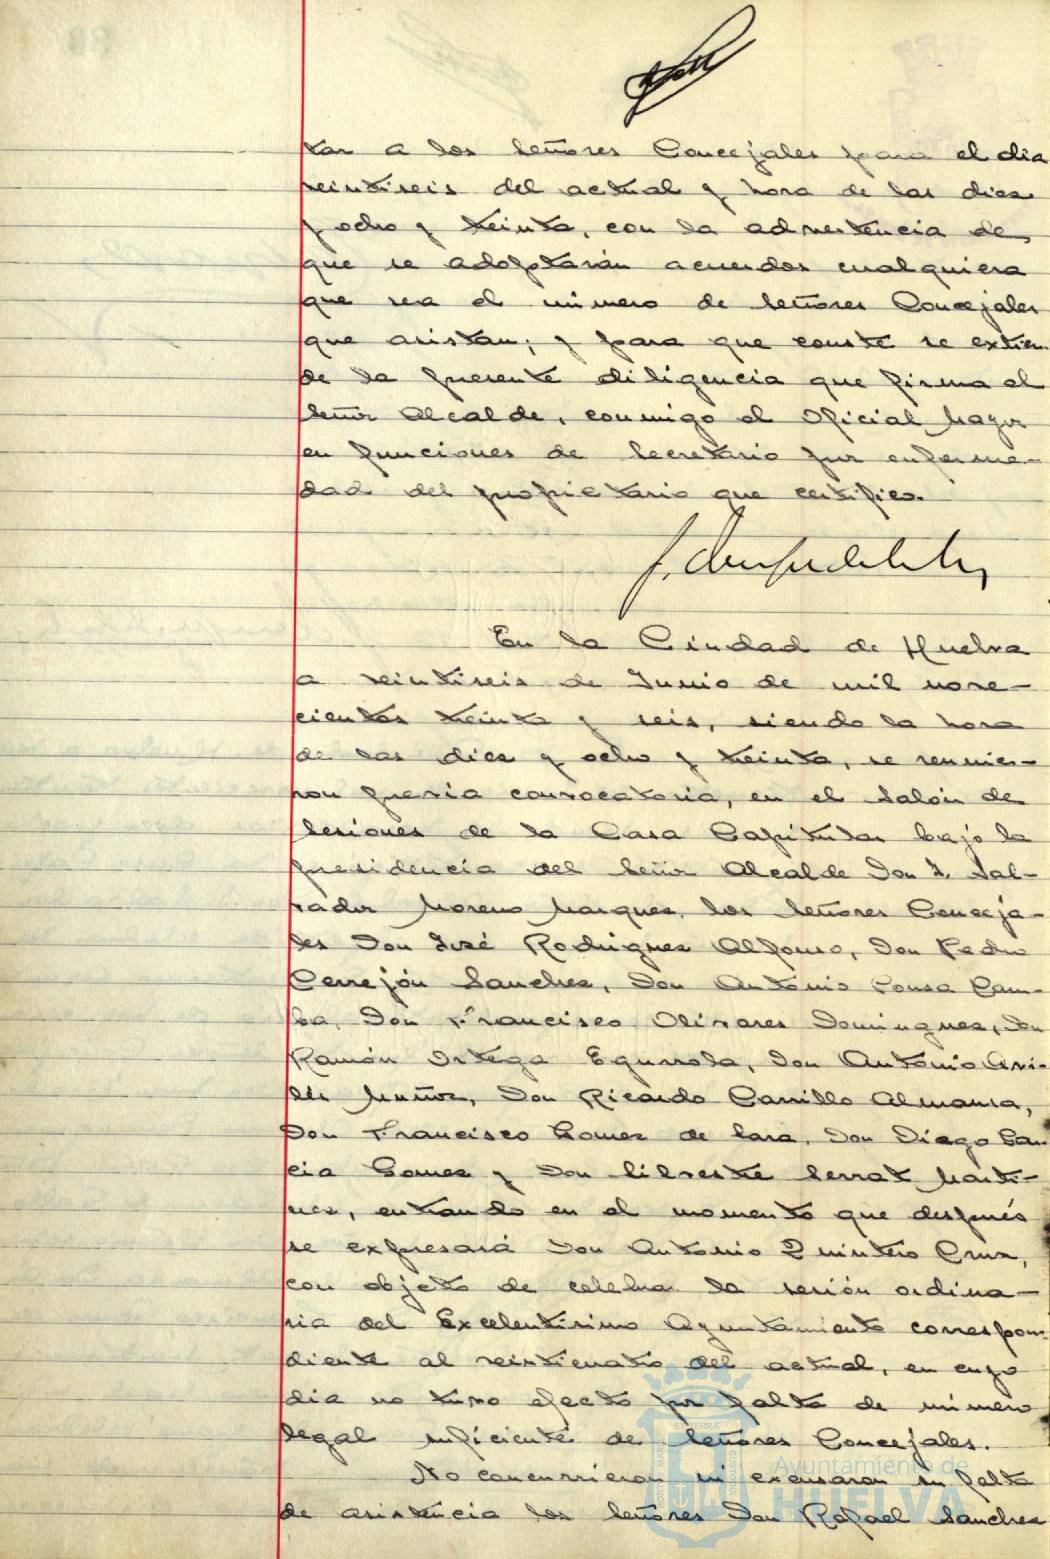 tar a los Señores Concejales para el dia
veintiseis del actual y hora de las diez
y ocho y treinta, con la advertencia de
que se adoptarán acuerdos cualquiera
que sea el número de Señores Concejales
que asistan; y para que conste se extien-
de la presente diligencia que firma el
Señor Alcalde, conmigo el Oficial Mayor
en funciones de Secretario por enferme-
dad del propietario que certifico.
En la Ciudad de Huelva
a veintiseis de Junio de mil nove-
cientos treinta y seis, siendo la hora
de las diez y ocho y treinta, se reunie-
ron previa convocatoria, en el Salón de
Sesiones de la Casa Capitular bajo la
presidencia del Señor Alcalde Don Sal-
vador Moreno Marquez, los Señores Conceja-
les Don José Rodriguez Alfonso, Don Pedro
Cerrejón Sanchez, Don Antonio Pousa Cam-
ba, Don Francisco Olivares Dominguez, Don
Ramón Ortega Don Antonio
Muñoz, Don Ricardo Carrillo Almansa,
Don Francisco Gomez de Lara, Don Diego Gar-
cia Gomez y Don Silvestre Serrat Marti-
nez, entrando en el momento que después
se expresará Don Antonio Quintero Cruz,
con objeto de celebrar la sesión ordina-
ria del Excelentisimo Ayuntamiento correspon-
diente al veinticuatro del actual, en cuyo
dia no tuvo efecto por falta de número
legal suficiente de Señores Concejales.
No concurrieron ni excusaron su falta
de asistencia los Señores Don Rafael Sanchez
Ayuntamiento de
HUELVA